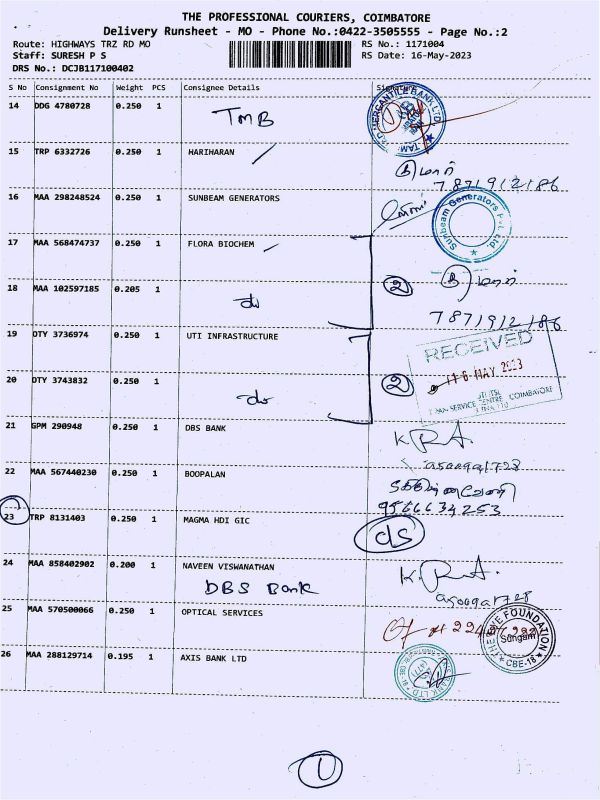 THE PROFESSIONAL COURIERS, COIMBATORE
Delivery Runsheet - MO - Phone No.:0422-3505555 - Page No.:2
Route: HIGHWAYS TRZ RD MO
RS No.: 1171004
Staff: SURESH P S
RS Date: 16-May-2023
DRS No.: DCJB117100402
S No Consignment No Weight PCS Consignee Details Signature
14 DDG 4780728 0.250 1 TMB
15 TRP 6332726 0.250 1 HARIHARAN
7871912186
16 MAA 298248524 0.250 1 SUNBEAM GENERATORS
Sunbeam Generators Pvt. Ltd.
17 MAA 568474737 0.250 1 FLORA BIOCHEM
18 MAA 102597185 0.205 1 do 2
7871912186
19 DTY 3736974 0.250 1 UTI INFRASTRUCTURE
RECEIVED
16 MAY 2023
20 DTY 3743832 0.250 1 do 2
COIMBATORE
21 GPM 290948 0.250 1 DBS BANK
22 MAA 567440230 0.250 1 BOOPALAN
9566634253
23 TRP 8131403 0.250 1 MAGMA HDI GIC ds
24 MAA 858402902 0.200 1 NAVEEN VISWANATHAN
DBS Bank
25 MAA 570500066 0.250 1 OPTICAL SERVICES
THE EYE FOUNDATION
Sungam
CBE-18
26 MAA 288129714 0.195 1 AXIS BANK LTD